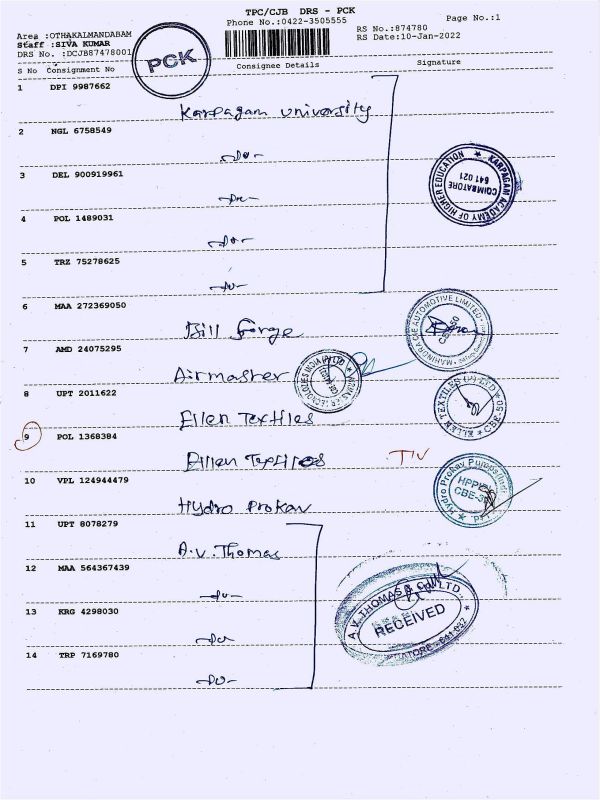 TPC/CJB DRS - PCK
Phone No.:0422-3505555
Page No.:1
Area :OTHAKALMANDABAM
Staff :SIVA KUMAR
DRS No. :DCJB87478001
RS No.:874780
RS Date:10-Jan-2022
PCK
S No Consignment No Consignee Details Signature
1 DPI 9987662 Karpagam University
2 NGL 6758549 -Do-
3 DEL 900919961 -Do-
KARPAGAM ACADEMY OF HIGHER EDUCATION
COIMBATORE
641 021
4 POL 1489031 -Do-
5 TRZ 75278625 -Do-
6 MAA 272369050 Bill Forge
MAHINDRA CIE AUTOMOTIVE LIMITED
7 AMD 24075295 Airmaster
8 UPT 2011622 Ellen Textiles
ELLEN TEXTILES (P) LTD
CBE-50
9 POL 1368384 Ellen Textiles
10 VPL 124944479 Hydro Prokav
Hydro Prokav Pumps
HPPI
CBE-
11 UPT 8078279 A.V. Thomas
12 MAA 564367439 -Do-
13 KRG 4298030 -Do-
A.V. THOMAS & Co. LTD.
RECEIVED
14 TRP 7169780 -Do-